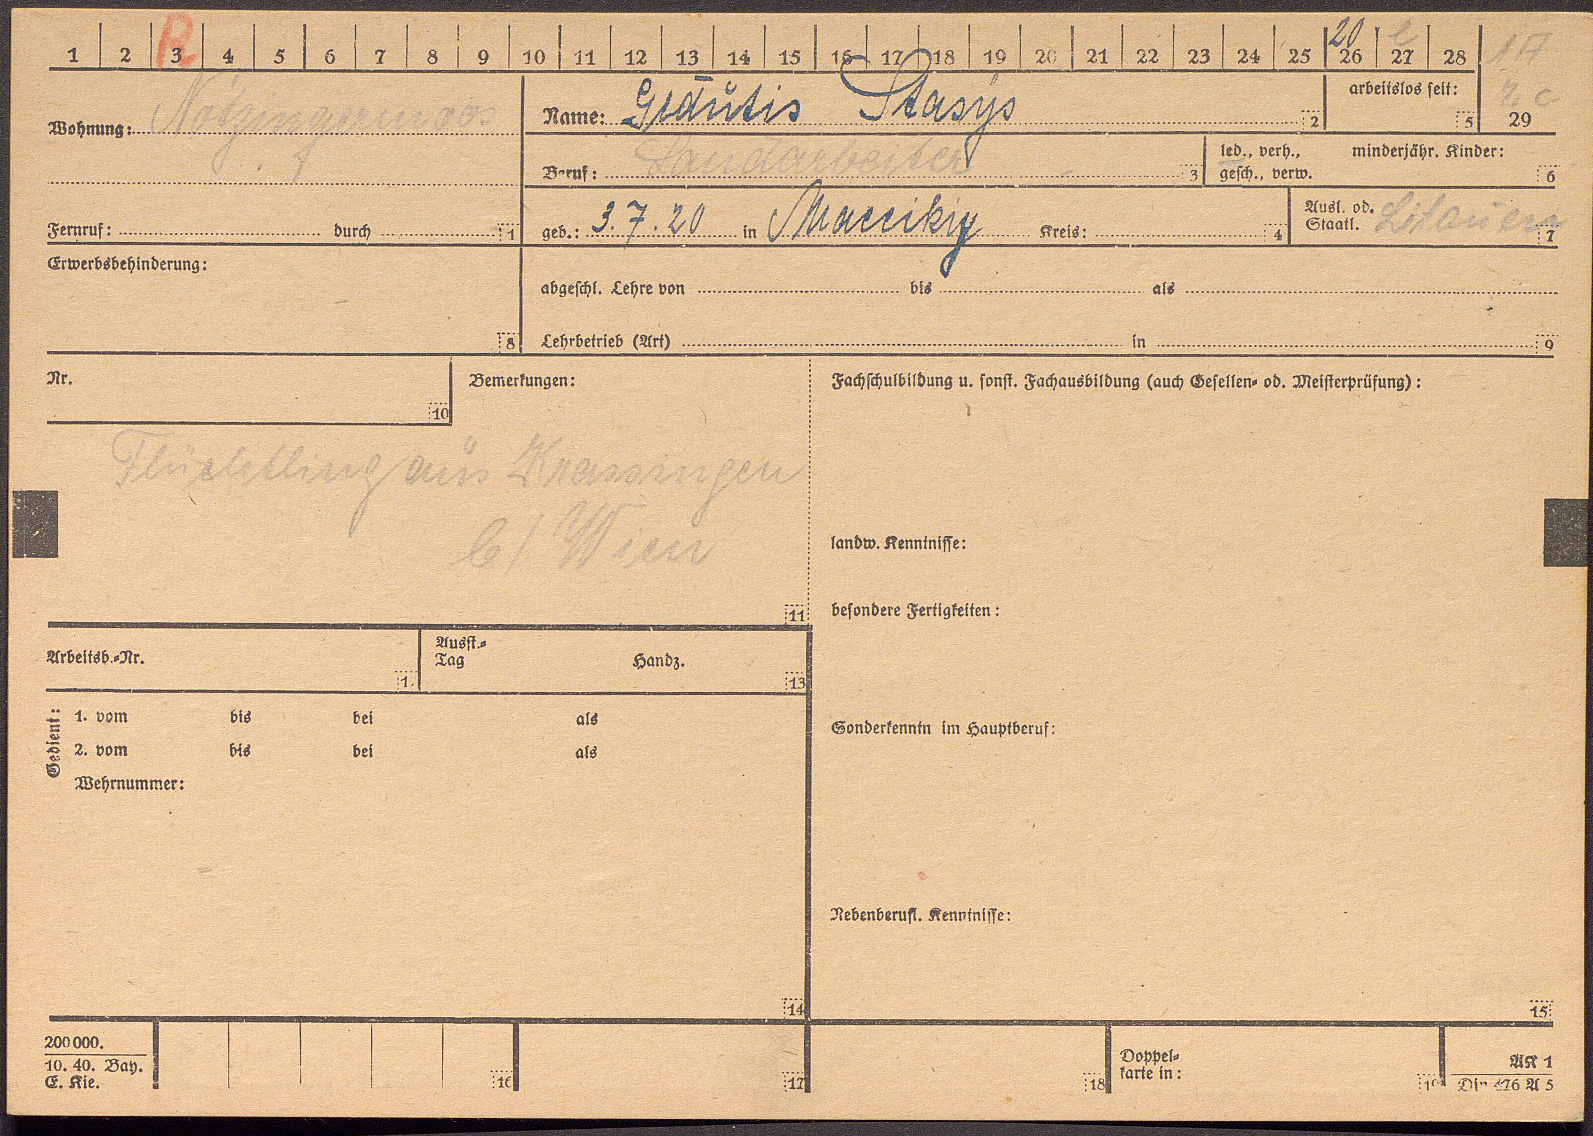 1 2 3 4 5 6 7 8 9 10 11 12 13 14 15 16 17 18 19 20 21 22 23 24 25 26 27 28
R
20
17
Wohnung: Notzingermoos
Name: Gedutis Stasys 2
arbeitslos seit: 5
29
Beruf: Landarbeiter 3
led., verh., minderjähr. Kinder:
gesch., verw. 6
Fernruf: durch 1
geb.: 3.7.20 in Kreis: 4
Ausl. od.
Staatl. Litauen 7
Erwerbsbehinderung: 8
abgeschl. Lehre von bis als
Lehrbetrieb (Art) in 9
Nr. 10
Bemerkungen:
Flüchtling aus
b/ Wien
11
Fachschulbildung u. sonst. Fachausbildung (auch Gesellen- od. Meisterprüfung):
landw. Kenntnisse:
besondere Fertigkeiten:
Sonderkenntn im Hauptberuf:
Nebenberufl. Kenntnisse:
15
Arbeitsb.-Nr. 1
Ausst.-
Tag Handz. 13
Gedient:
1. vom bis bei als
2. vom bis bei als
Wehrnummer:
14
200000.
10. 40. Bay.
E. Kie.
16
17
18
Doppel-
karte in:
19
AK 1
Din 476 A 5